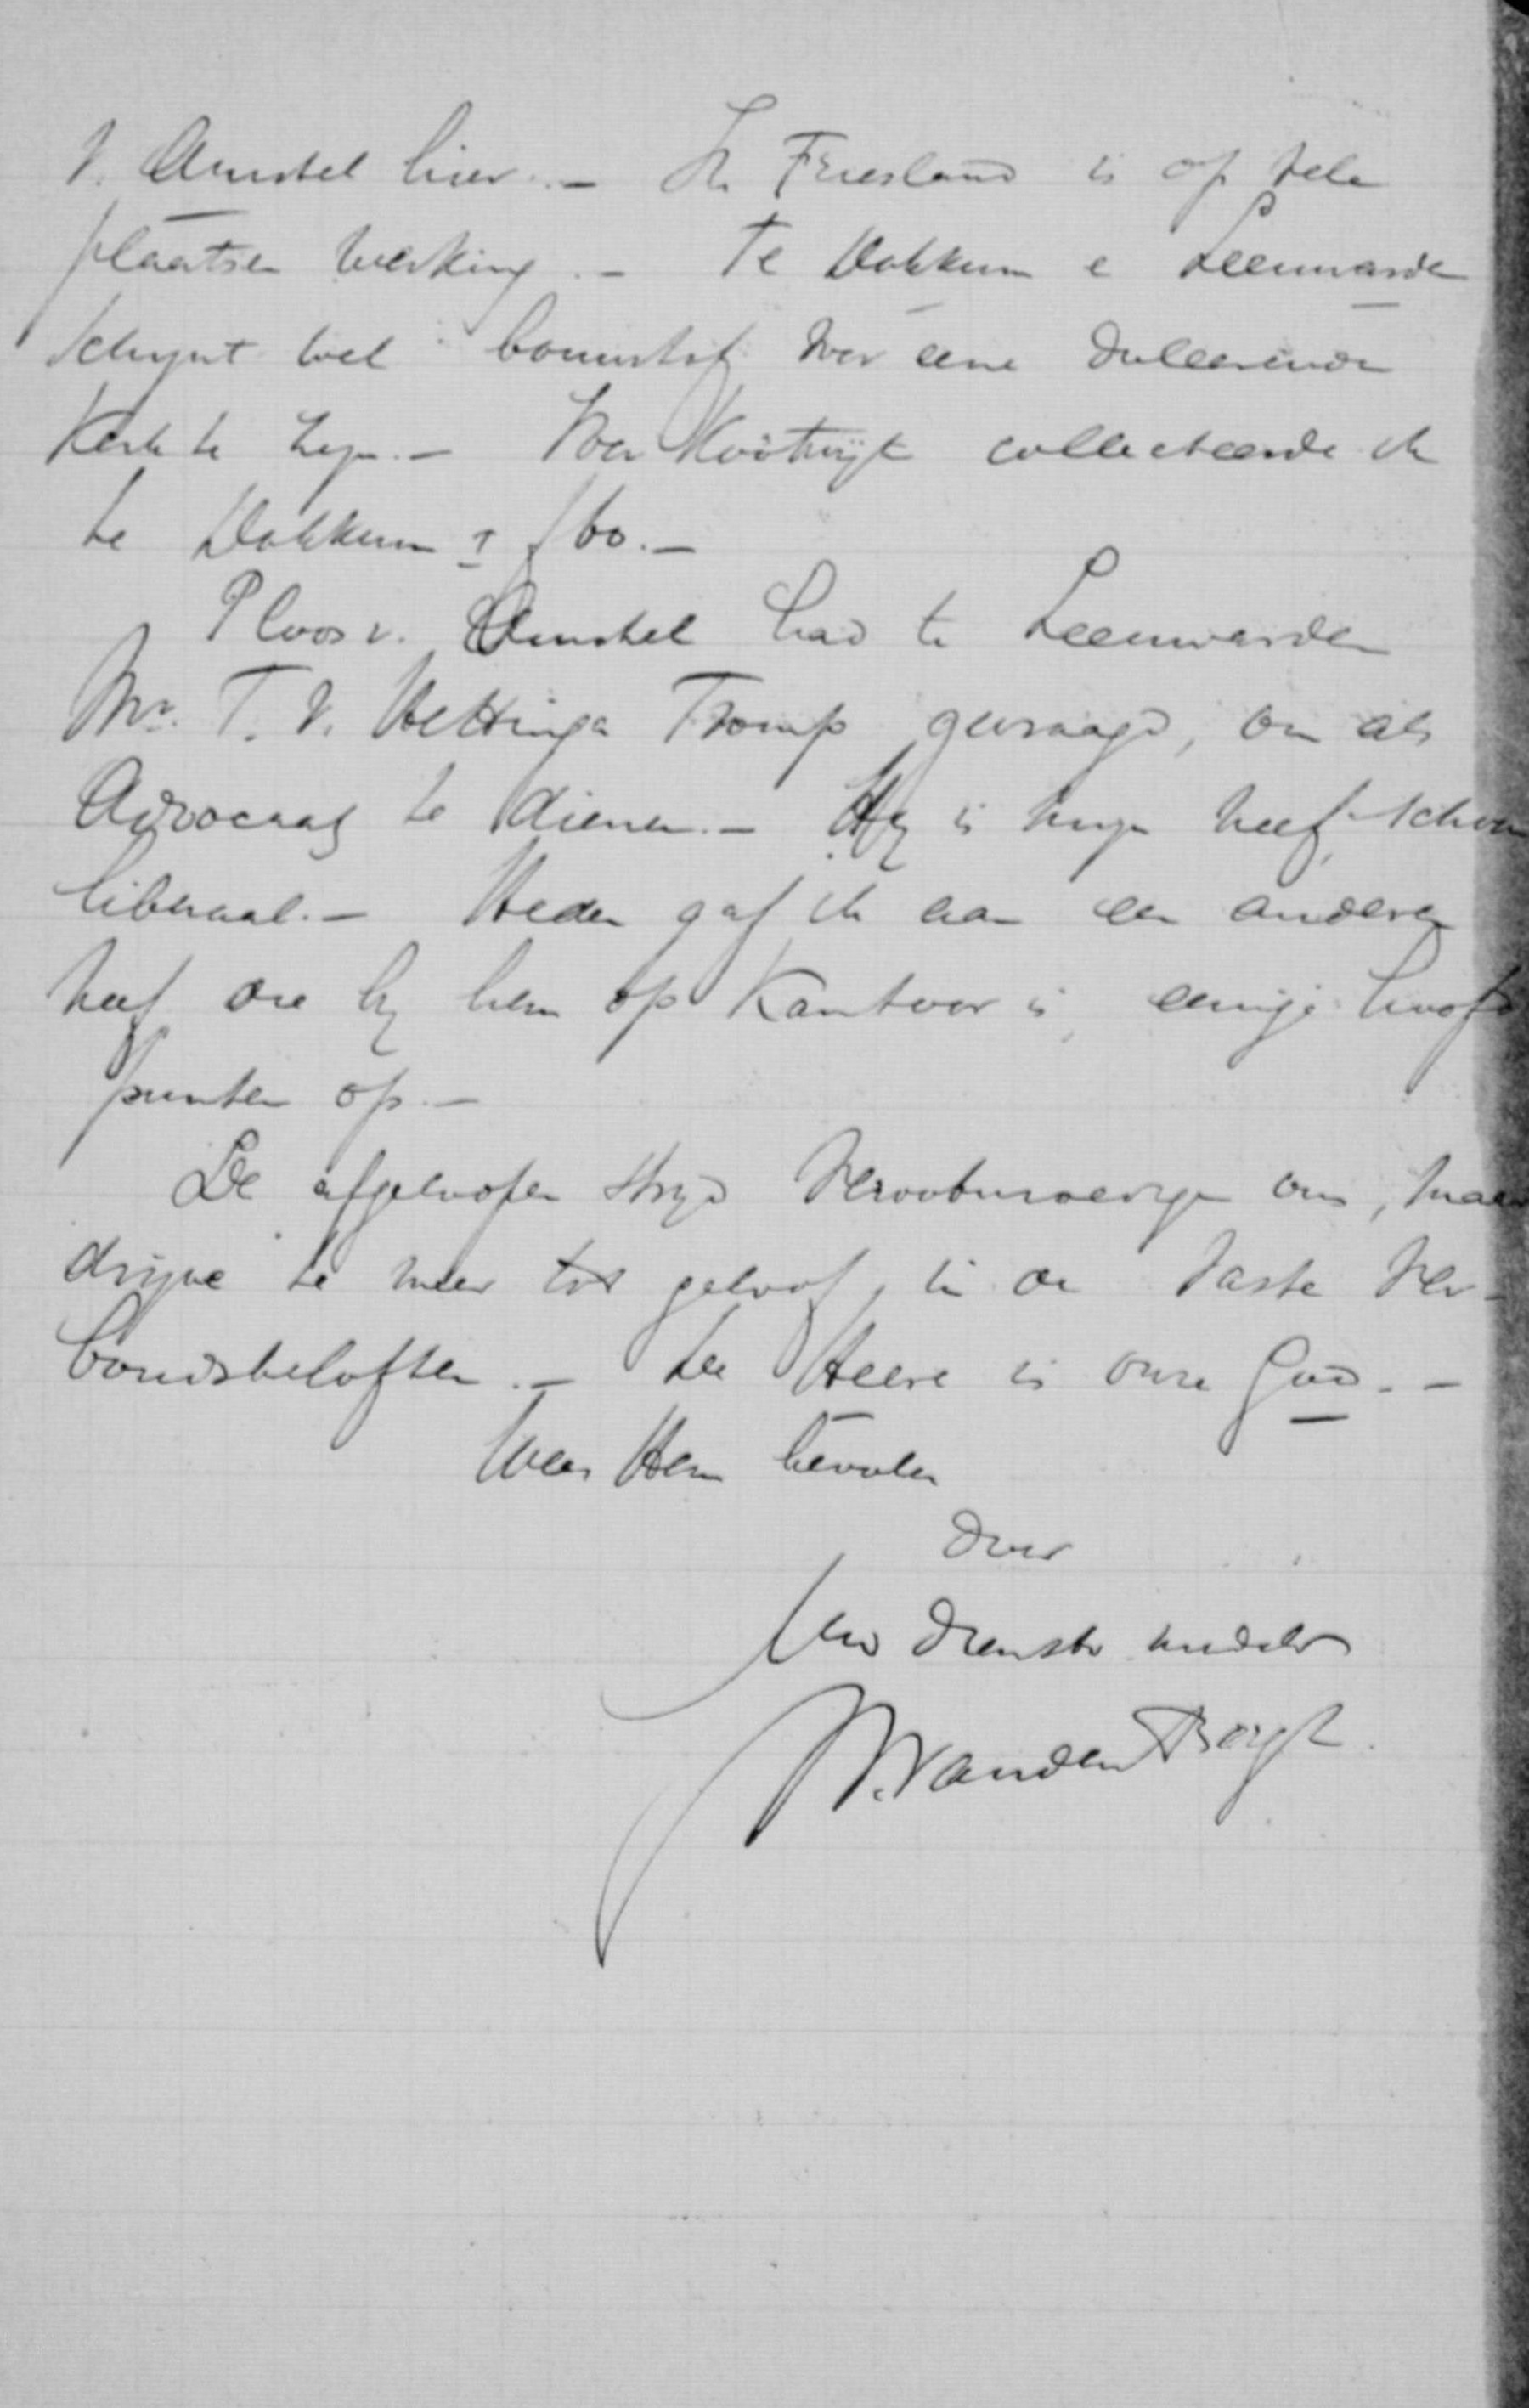 v. Amstel hier. — In Friesland is op vele
plaatsen werking. — Te Dokkum e Leeuwarden
schynt wel bouwstof voor eene doleerende
Kerk te zyn. — Voor Kootwijk collecteerde ik
te Dokkum ± f 60. —
Ploos v. Amstel had te Leeuwarden
Mr. T. v. Hettinga Tromp gevraagd, om als
Advocaat te dienen. — Hy is myn neef, schoon
liberaal. — Heden gaf ik aan een anderen
neef die by hem op Kantoor is, eenige hoofd
punten op. —
De afgeloopen stryd verootmoedige ons, maar
dryve te meer tot geloof, in de vaste Ver-
bondsbeloften. — De Heere is onze God. —
Wees Hem bevolen
door
Uw dienstv. broeder
W. van den Bergh.